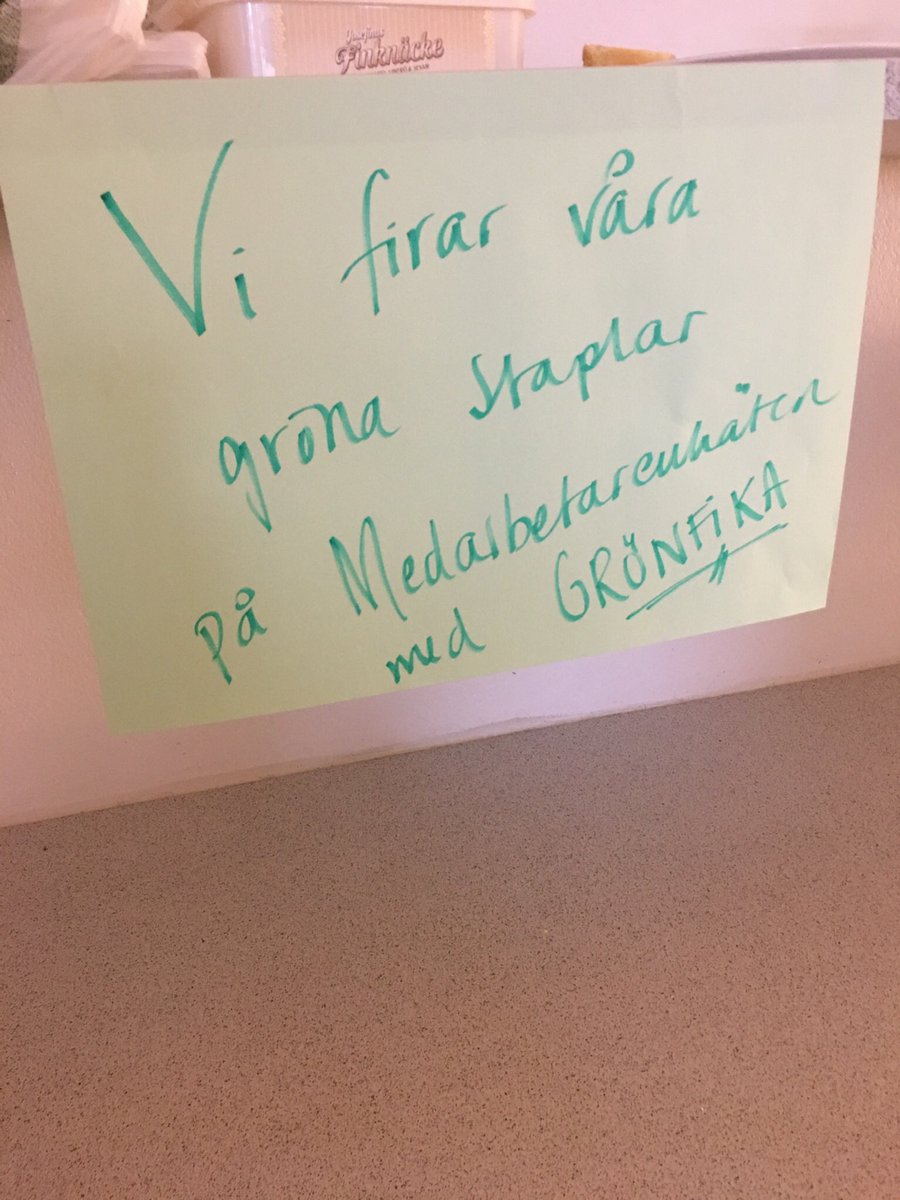 Finknäcke
Vi firar våra
gröna staplar
på Medarbetarenkäten
med GRÖNFIKA